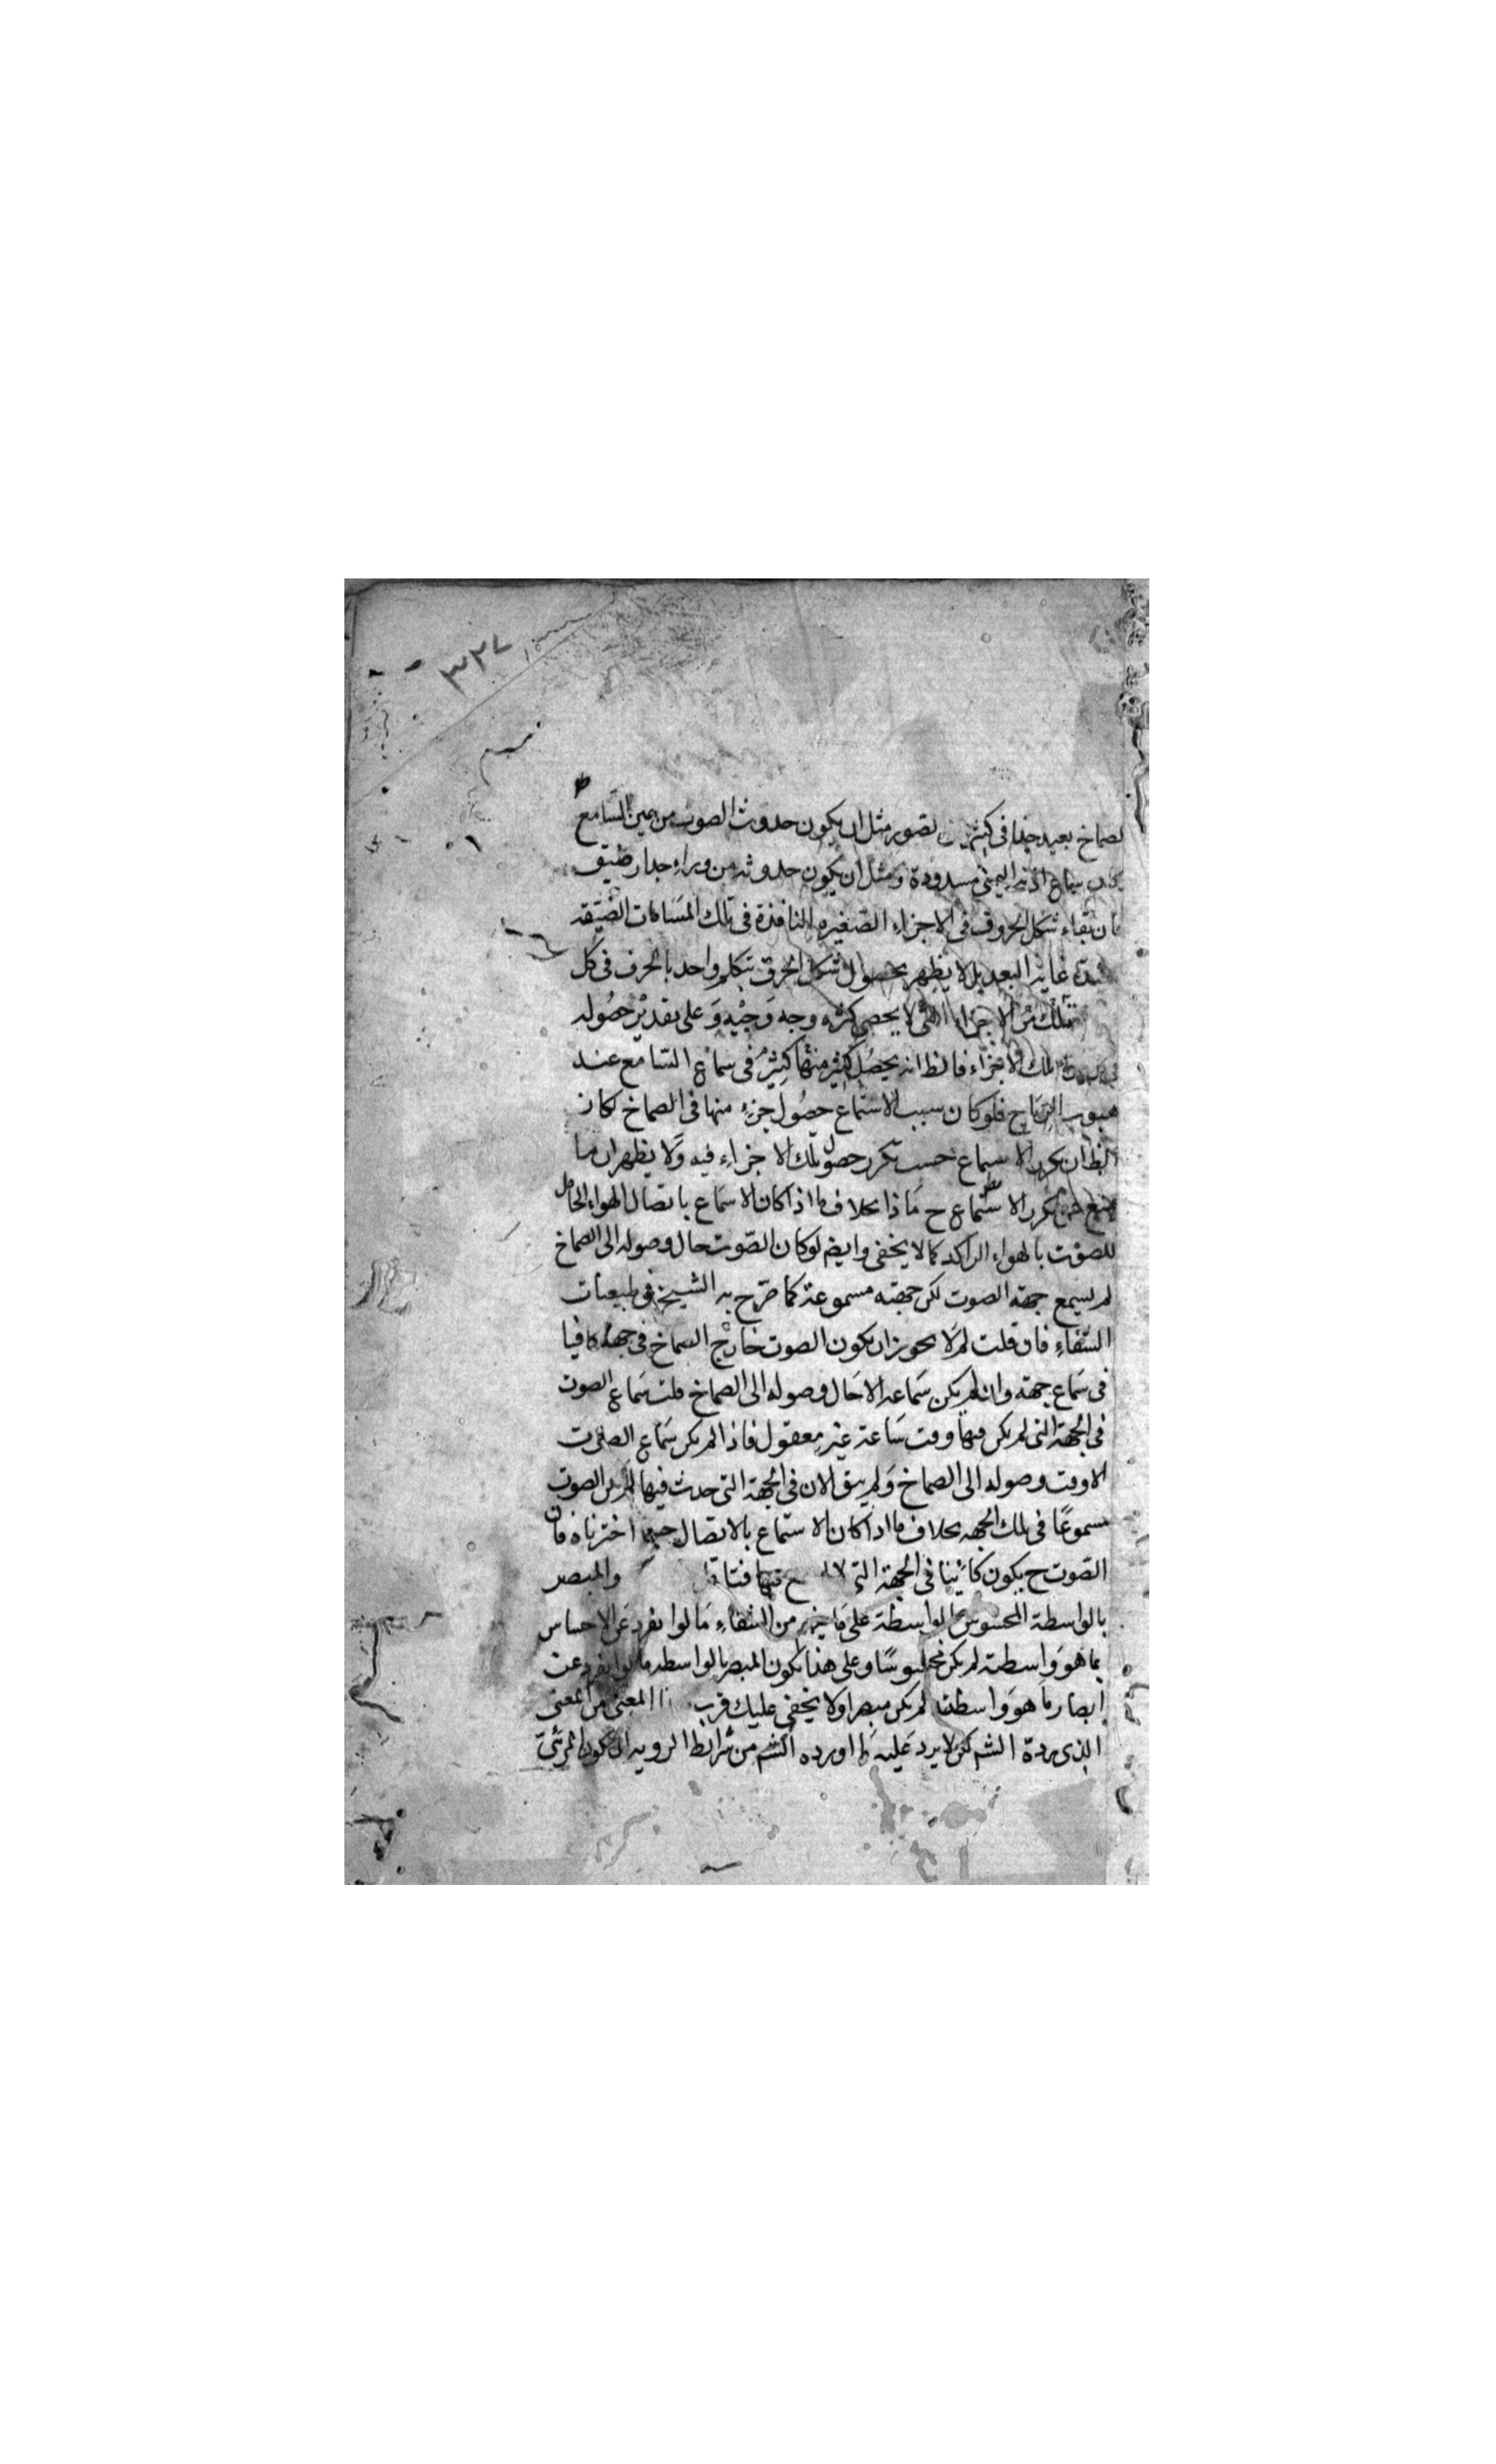 ٣٢٧
لصماخ بعيد جدا فى كثير تصور مثل ان يكون حدوث الصوت من عين السامع
سماع اليمنى مسدودة ومثل ان يكون حدوثه من وراء جدار ضيق
ان بقاء شكل الحروف فى الاجزاء الصغيره النافذة فى تلك المسامات الضيقه
غاية البعد بل لا يظهر بحصول شكل الحرف بتكلم واحد بالحرف فى كل
تلك من الاجزاء التى لا يحصى كثره وجه وجيه وعلى تقدير حصوله
تلك الاجزاء فالظ انه يحصل كثير منها كثير فى سماع السامع عند
هبوب الرياح فلو كان سبب الاستماع حصول جزء منها فى الصماخ لكان
الظ ان يكرر الاسماع حسب تكرر حصول تلك الاجزاء فيه ولا يظهر ان ما
تكرر الاستماع ح ماذا بخلاف ما اذا كان الاسماع باتصال الهواء الحامل
للصوت بالهواء الراكد كما لا يخفى وايضم لو كان الصوت حال وصوله الى الصماخ
لم يسمع جهة الصوت لكن جهته مسموعة كما صرح به الشيخ فى طبيعيات
الشفاء فان قلت لم لا يجوز ان يكون الصوت خارج الصماخ فى جهة كافيا
فى سماع جهته وان لم يكن سماعه الا حال وصوله الى الصماخ قلت سماع الصوت
فى الجهة التى لم يكن فيها وقت سماعة غير معقول فاذا لم يكن سماع الصوت
الا وقت وصوله الى الصماخ ولم يبق الان فى الجهة التى حدث فيها لم يكن الصوت
مسموعا فى تلك الجهه بخلاف ما اذا كان الاستماع بالاتصال حيثما اخترناه فان
الصوت ح يكون كائنا فى الجهة التى فيها والمبصر
بالواسطة المحسوس بالواسطة على من الشفاء ما لو انفرد عن الاحساس
بما هو واسطة لم يكن محسوسا وعلى هذا يكون المبصر بالواسطه ما لو انفرد عن
ابصار ما هو واسطة لم يكن مبصرا ولا يخفى عليك قرب المعنى من المعنى
الذى الشم لكن لا يرد عليه ما اورده الشم من شرائط الرويه ان يكون المرئى